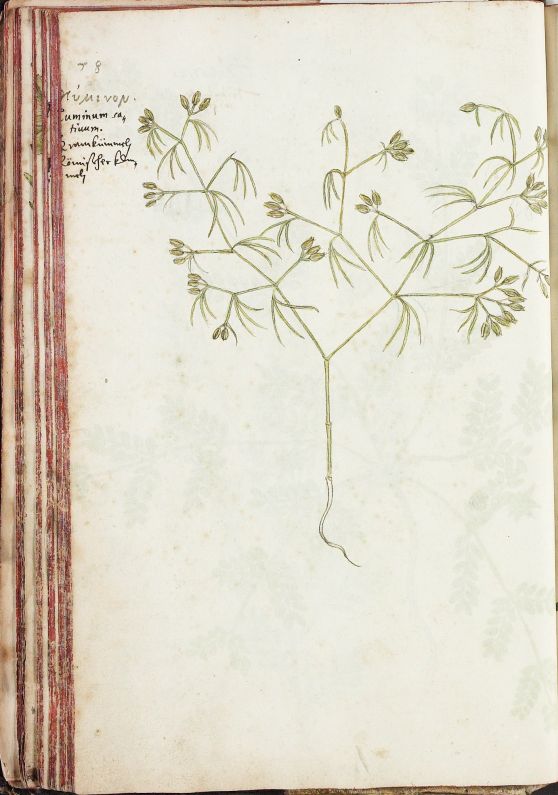 78
Κύμινον.
Cuminum sa,
tiuum.
Kramkümmel
Römischer küm,
mel